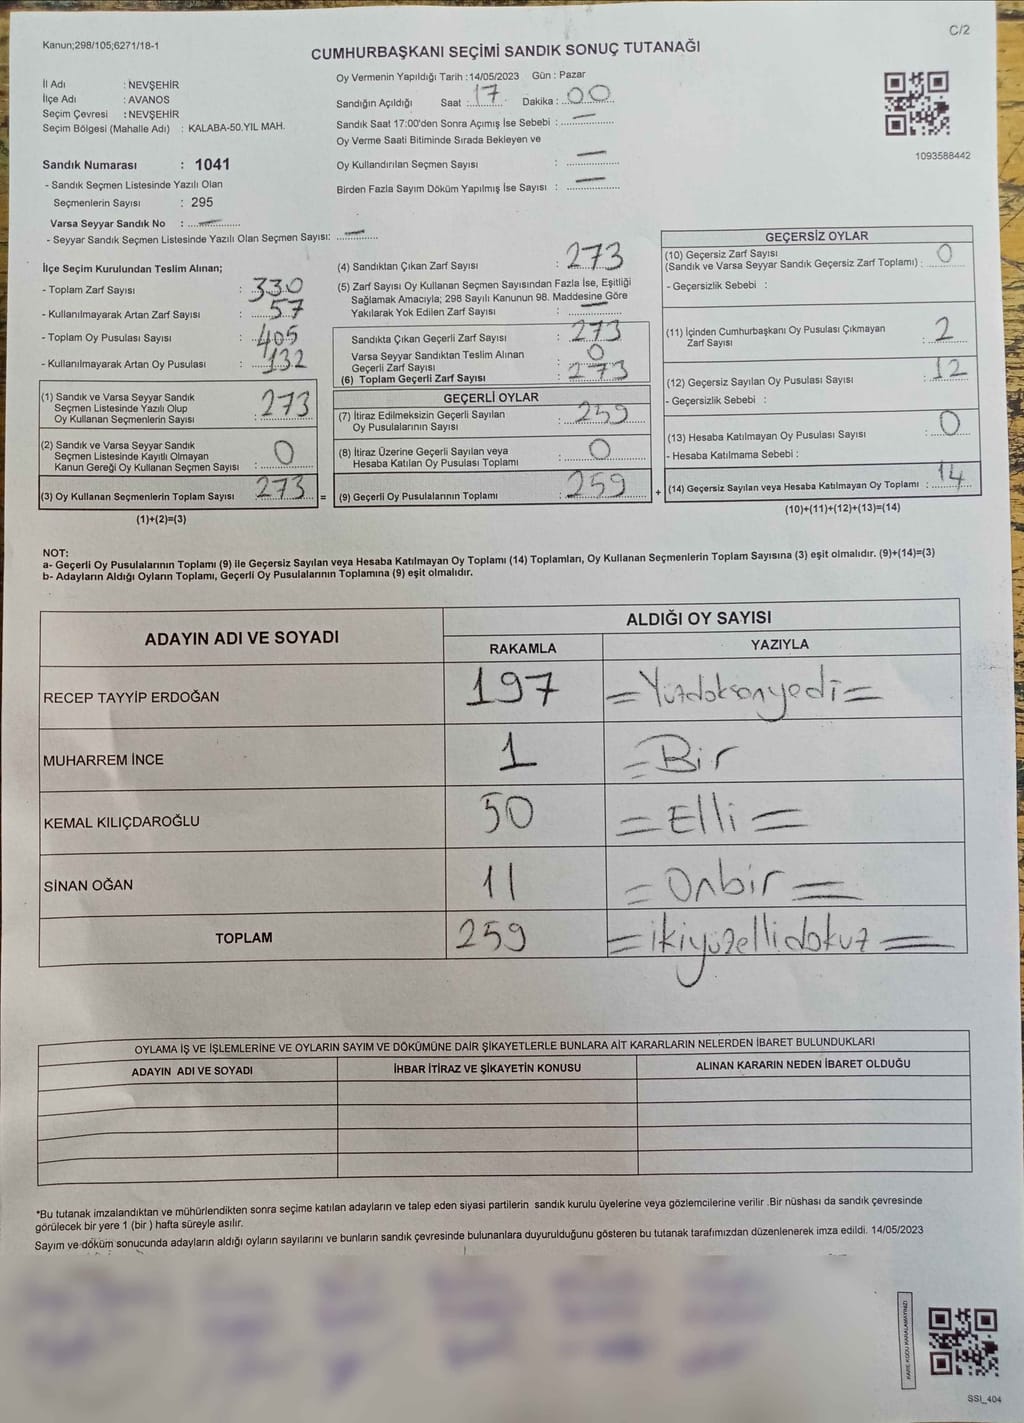 Kanun;298/105;6271/18-1
C/2
CUMHURBAŞKANI SEÇİMİ SANDIK SONUÇ TUTANAĞI
İl Adı : NEVŞEHİR
İlçe Adı : AVANOS
Seçim Çevresi : NEVŞEHİR
Seçim Bölgesi (Mahalle Adı) : KALABA-50.YIL MAH.
Sandık Numarası : 1041
- Sandık Seçmen Listesinde Yazılı Olan
Seçmenlerin Sayısı : 295
Varsa Seyyar Sandık No : —
- Seyyar Sandık Seçmen Listesinde Yazılı Olan Seçmen Sayısı: —
Oy Vermenin Yapıldığı Tarih :14/05/2023 Gün : Pazar
Sandığın Açıldığı Saat : 17 Dakika : 00
Sandık Saat 17:00'den Sonra Açımış İse Sebebi : —
Oy Verme Saati Bitiminde Sırada Bekleyen ve
Oy Kullandırılan Seçmen Sayısı : —
Birden Fazla Sayım Döküm Yapılmış İse Sayısı : —
1093588442
İlçe Seçim Kurulundan Teslim Alınan;
- Toplam Zarf Sayısı : 330
- Kullanılmayarak Artan Zarf Sayısı : 57
- Toplam Oy Pusulası Sayısı : 405
- Kullanılmayarak Artan Oy Pusulası : 132
(1) Sandık ve Varsa Seyyar Sandık
Seçmen Listesinde Yazılı Olup
Oy Kullanan Seçmenlerin Sayısı : 273
(2) Sandık ve Varsa Seyyar Sandık
Seçmen Listesinde Kayıtlı Olmayan
Kanun Gereği Oy Kullanan Seçmen Sayısı : 0
(3) Oy Kullanan Seçmenlerin Toplam Sayısı : 273 =
(1)+(2)=(3)
(4) Sandıktan Çıkan Zarf Sayısı : 273
(5) Zarf Sayısı Oy Kullanan Seçmen Sayısından Fazla İse, Eşitliği
Sağlamak Amacıyla; 298 Sayılı Kanunun 98. Maddesine Göre
Yakılarak Yok Edilen Zarf Sayısı : —
Sandıkta Çıkan Geçerli Zarf Sayısı : 273
Varsa Seyyar Sandıktan Teslim Alınan
Geçerli Zarf Sayısı : 0
(6) Toplam Geçerli Zarf Sayısı : 273
GEÇERLİ OYLAR
(7) İtiraz Edilmeksizin Geçerli Sayılan
Oy Pusulalarının Sayısı : 259
(8) İtiraz Üzerine Geçerli Sayılan veya
Hesaba Katılan Oy Pusulası Toplamı : 0
(9) Geçerli Oy Pusulalarının Toplamı : 259 +
GEÇERSİZ OYLAR
(10) Geçersiz Zarf Sayısı
(Sandık ve Varsa Seyyar Sandık Geçersiz Zarf Toplamı) : 0
- Geçersizlik Sebebi :
(11) İçinden Cumhurbaşkanı Oy Pusulası Çıkmayan
Zarf Sayısı : 2
(12) Geçersiz Sayılan Oy Pusulası Sayısı : 12
- Geçersizlik Sebebi :
(13) Hesaba Katılmayan Oy Pusulası Sayısı : 0
- Hesaba Katılmama Sebebi :
(14) Geçersiz Sayılan veya Hesaba Katılmayan Oy Toplamı : 14
(10)+(11)+(12)+(13)=(14)
NOT:
a- Geçerli Oy Pusulalarının Toplamı (9) ile Geçersiz Sayılan veya Hesaba Katılmayan Oy Toplamı (14) Toplamları, Oy Kullanan Seçmenlerin Toplam Sayısına (3) eşit olmalıdır. (9)+(14)=(3)
b- Adayların Aldığı Oyların Toplamı, Geçerli Oy Pusulalarının Toplamına (9) eşit olmalıdır.
ADAYIN ADI VE SOYADI
ALDIĞI OY SAYISI
RAKAMLA YAZIYLA
RECEP TAYYİP ERDOĞAN 197 = Yüzdoksanyedi =
MUHARREM İNCE 1 = Bir
KEMAL KILIÇDAROĞLU 50 = Elli =
SİNAN OĞAN 11 = Onbir =
TOPLAM 259 = ikiyüzellidokuz =
OYLAMA İŞ VE İŞLEMLERİNE VE OYLARIN SAYIM VE DÖKÜMÜNE DAİR ŞİKAYETLERLE BUNLARA AİT KARARLARIN NELERDEN İBARET BULUNDUKLARI
ADAYIN ADI VE SOYADI İHBAR İTİRAZ VE ŞİKAYETİN KONUSU ALINAN KARARIN NEDEN İBARET OLDUĞU
*Bu tutanak imzalandıktan ve mühürlendikten sonra seçime katılan adayların ve talep eden siyasi partilerin sandık kurulu üyelerine veya gözlemcilerine verilir .Bir nüshası da sandık çevresinde
görülecek bir yere 1 (bir ) hafta süreyle asılır.
Sayım ve döküm sonucunda adayların aldığı oyların sayılarını ve bunların sandık çevresinde bulunanlara duyurulduğunu gösteren bu tutanak tarafımızdan düzenlenerek imza edildi. 14/05/2023
KARE KODU KARALAMAYINIZ!
SSI_404